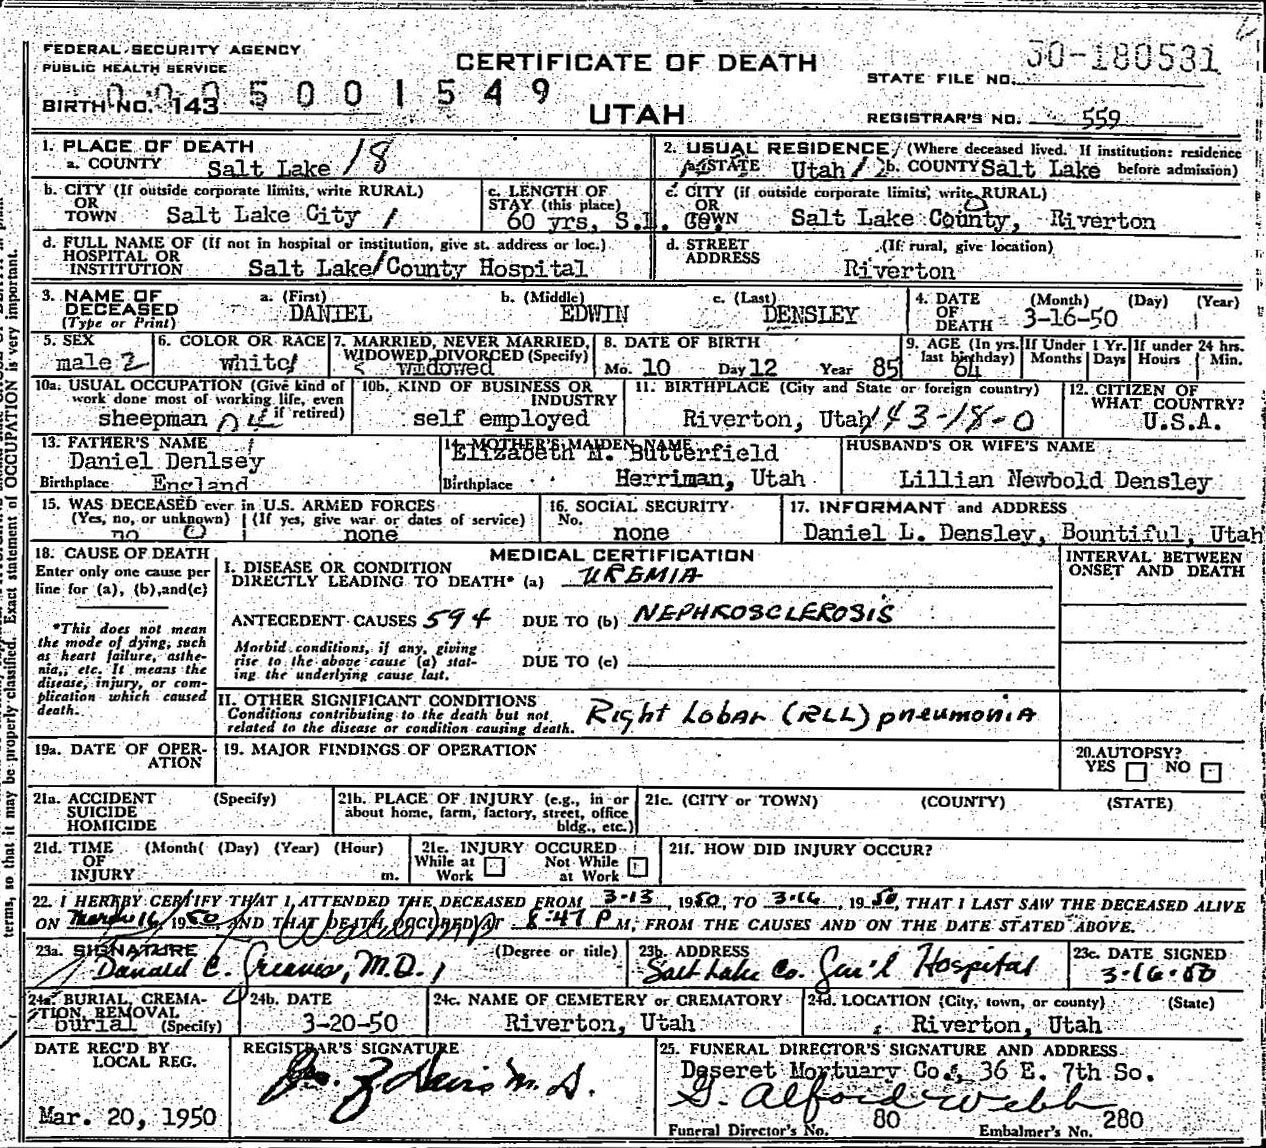 FEDERAL SECURITY AGENCY
PUBLIC HEALTH SERVICE
BIRTH NO. 143
0005001549
CERTIFICATE OF DEATH
UTAH
STATE FILE NO. 50-180531
REGISTRAR'S NO. 559
1. PLACE OF DEATH
a. COUNTY Salt Lake 18
2. USUAL RESIDENCE (Where deceased lived. If institution: residence before admission)
a. STATE Utah b. COUNTY Salt Lake
b. CITY (If outside corporate limits, write RURAL) OR TOWN Salt Lake City 1
c. LENGTH OF STAY (this place) 60 yrs, S.L. Co.
c. CITY (if outside corporate limits, write RURAL) OR TOWN Salt Lake County, Riverton
d. FULL NAME OF (If not in hospital or institution, give st. address or loc.) HOSPITAL OR INSTITUTION Salt Lake County Hospital
d. STREET ADDRESS (If rural, give location) Riverton
3. NAME OF DECEASED (Type or Print)
a. (First) DANIEL
b. (Middle) EDWIN
c. (Last) DENSLEY
4. DATE OF DEATH (Month) (Day) (Year) 3-16-50
5. SEX male 2
6. COLOR OR RACE white 1
7. MARRIED, NEVER MARRIED, WIDOWED DIVORCED (Specify) widowed
8. DATE OF BIRTH Mo. 10 Day 12 Year 85
9. AGE (In yrs. last birthday) 64
If Under 1 Yr. Months Days
If under 24 hrs. Hours Min.
10a. USUAL OCCUPATION (Give kind of work done most of working life, even if retired) sheepman
10b. KIND OF BUSINESS OR INDUSTRY self employed
11. BIRTHPLACE (City and State or foreign country) Riverton, Utah 143-18-0
12. CITIZEN OF WHAT COUNTRY? U.S.A.
13. FATHER'S NAME Daniel Denlsey
Birthplace England
14. MOTHER'S MAIDEN NAME Elizabeth M. Butterfield
Birthplace Herriman, Utah
HUSBAND'S OR WIFE'S NAME
Lillian Newbold Densley
15. WAS DECEASED ever in U.S. ARMED FORCES
(Yes, no, or unknown) no 0
(If yes, give war or dates of service) none
16. SOCIAL SECURITY No. none
17. INFORMANT and ADDRESS
Daniel L. Densley, Bountiful, Utah
18. CAUSE OF DEATH
Enter only one cause per line for (a), (b), and (c)
*This does not mean the mode of dying, such as heart failure, asthenia, etc. It means the disease, injury, or complication which caused death.
MEDICAL CERTIFICATION
INTERVAL BETWEEN ONSET AND DEATH
I. DISEASE OR CONDITION DIRECTLY LEADING TO DEATH* (a) UREMIA
ANTECEDENT CAUSES 594 DUE TO (b) NEPHROSCLEROSIS
Morbid conditions, if any, giving rise to the above cause (a) stating the underlying cause last.
DUE TO (c)
II. OTHER SIGNIFICANT CONDITIONS
Conditions contributing to the death but not related to the disease or condition causing death.
Right Lobar (RLL) pneumonia
19a. DATE OF OPERATION
19. MAJOR FINDINGS OF OPERATION
20. AUTOPSY? YES NO
21a. ACCIDENT SUICIDE HOMICIDE (Specify)
21b. PLACE OF INJURY (e.g., in or about home, farm, factory, street, office bldg., etc.)
21c. (CITY or TOWN) (COUNTY) (STATE)
21d. TIME OF INJURY (Month( (Day) (Year) (Hour) m.
21e. INJURY OCCURED While at Work Not While at Work
21f. HOW DID INJURY OCCUR?
22. I HEREBY CERTIFY THAT I ATTENDED THE DECEASED FROM 3-13, 1950, TO 3-16, 1950, THAT I LAST SAW THE DECEASED ALIVE
ON March 16 1950, AND THAT DEATH OCCURED AT 8:47 P M, FROM THE CAUSES AND ON THE DATE STATED ABOVE.
23a. SIGNATURE (Degree or title)
Donald C. Greaves, M.D.
23b. ADDRESS
Salt Lake Co. Gen'l Hospital
23c. DATE SIGNED
3-16-50
24a. BURIAL, CREMATION, REMOVAL (Specify) burial
24b. DATE 3-20-50
24c. NAME OF CEMETERY or CREMATORY Riverton, Utah
24d. LOCATION (City, town, or county) (State) Riverton, Utah
DATE REC'D BY LOCAL REG.
Mar. 20, 1950
REGISTRAR'S SIGNATURE
25. FUNERAL DIRECTOR'S SIGNATURE AND ADDRESS
Deseret Mortuary Co., 36 E. 7th So.
G. Alford Webb
Funeral Director's No. 80 Embalmer's No. 280
terms, so that it may be properly classified. Exact statement of OCCUPATION is very important.